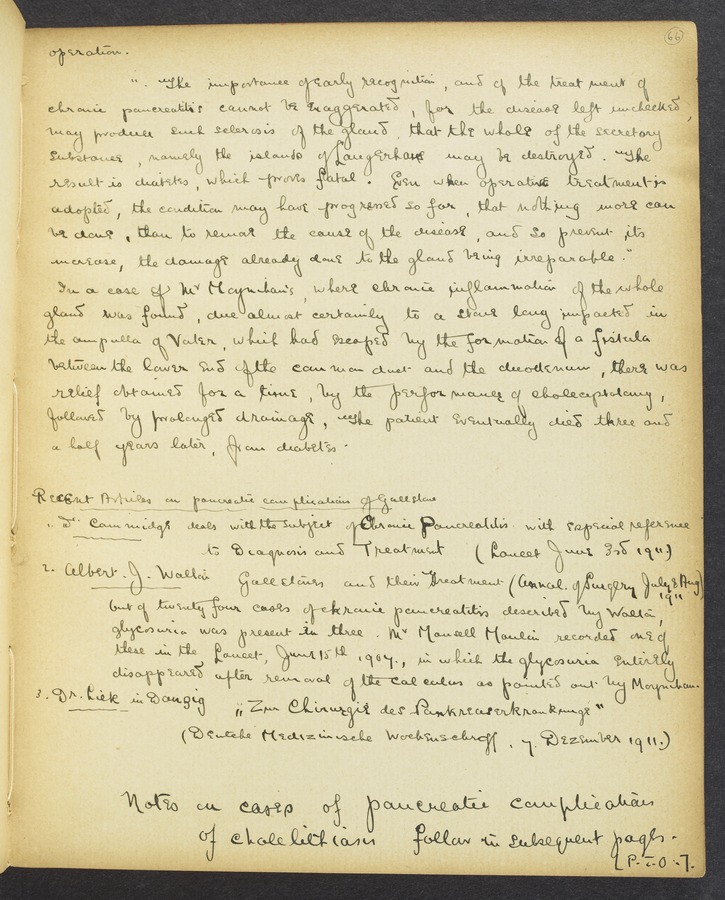 66
operation.
". The importance of early recognition, and of the treatment of
chronic pancreatitis cannot be exaggerated, for the disease left unchecked,
may produce such sclerosis of the gland, that the whole of the secretory
substance, namely the islands of Langerhans may be destroyed. The
result is diabetes, which proves fatal. Even when operative treatment is
adopted, the condition may have progressed so far, that nothing more can
be done, than to remove the cause of the disease, and so prevent its
increase, the damage already done to the gland being irreparable."
In a case of Mr Moynihan's, where chronic inflammation of the whole
gland was found, due almost certainly to a stone long impacted in
the ampulla of Vater, which had escaped by the formation of a fistula
between the lower end of the common duct and the duodenum, there was
relief obtained for a time, by the performance of cholecystotomy,
followed by prolonged drainage, The patient eventually died three and
a half years later, from diabetes.
Recent Articles on pancreatic complications of Gallstone
Cammidge deals with the subject of Chronic Pancreatitis with especial reference
to Diagnosis and Treatment (Lancet June 3rd 1911)
2. Albert. J. Walton Gallstones and their treatment (Annal. of Surgery July & Aug)
1911
Out of twenty four cases of chronic pancreatitis described by Walton,
glycosuria was present in three. Mr Mansell Moulin recorded one of
these in the Lancet, June 15th 1907., in which the glycosuria entirely
disappeared after removal of the calculus as pointed out by Moynihan.
3. Dr. Liek in Danzig "Zur Chirurgie des Pankreaserkrankunge"
(Deutche Medizinische Wochenschrift, 7. Dezember 1911.)
Notes on cases of pancreatic complications
of cholelithiasis follow in subsequent pages.
[P.T.O.].